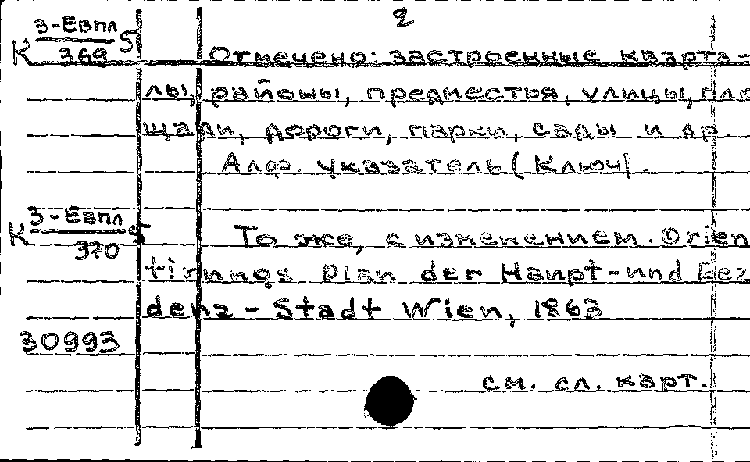 2
К 3-Евпл/369 5 Отмечено: застроенные кварта-
лы, районы, предместья, улицы, пло
щади, дороги, парки, сады и др
Алф. указатель (Ключ).
К 3-Евпл/370 5 То же, с изменением. Orien
tirungs Plan der Haupt-und Rez
denz-Stadt Wien, 1863
30993
см. сл. карт.